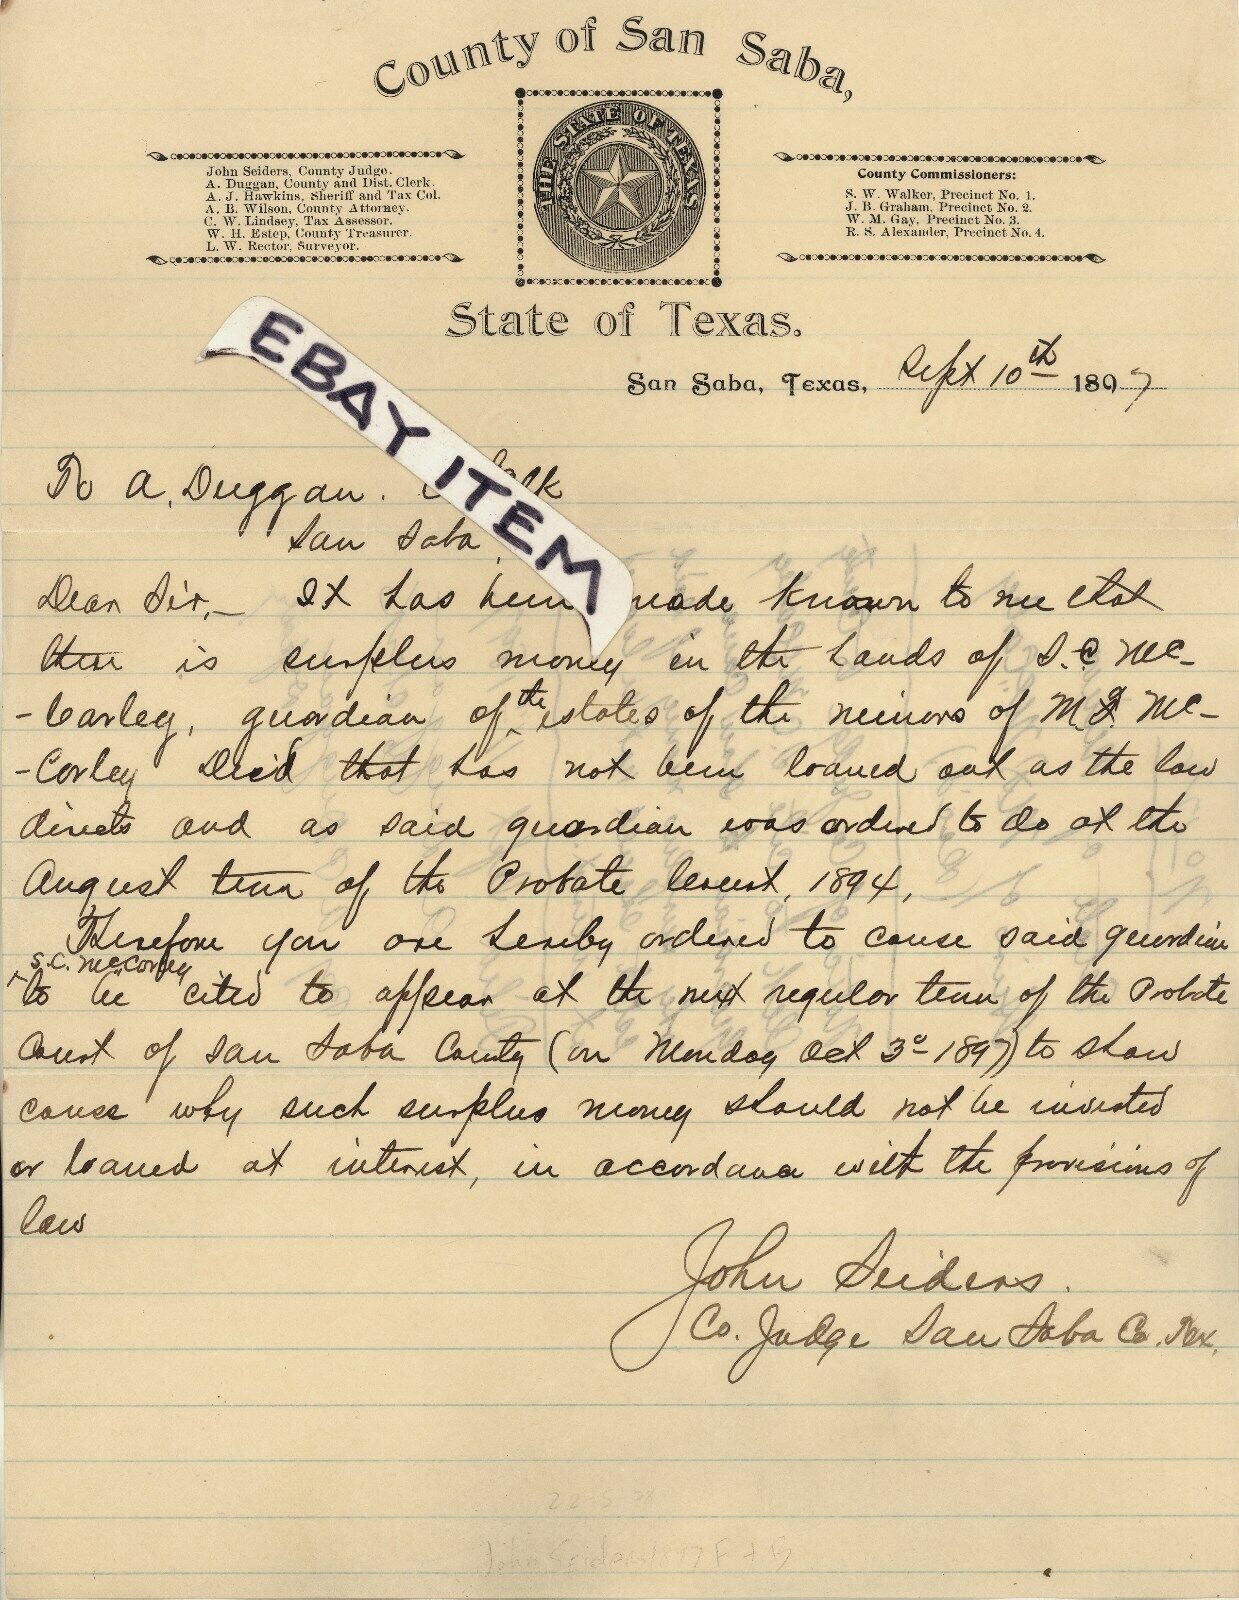 County of San Saba,
THE STATE OF TEXAS
John Seiders, County Judge.
A. Duggan, County and Dist. Clerk.
A. J. Hawkins, Sheriff and Tax Col.
A. B. Wilson, County Attorney.
C. W. Lindsey, Tax Assessor.
W. H. Estep, County Treasurer.
L. W. Rector, Surveyor.
County Commissioners:
S. W. Walker, Precinct No. 1.
J. B. Graham, Precinct No. 2.
W. M. Gay, Precinct No. 3.
R. S. Alexander, Precinct No. 4.
State of Texas.
San Saba, Texas, Sept 10th 1897
EBAY ITEM
To A. Duggan. Clk
San Saba
Dear Sir,— It has been made known to me that
there is surplus money in the hands of S. C. Mc-
-Corley, guardian of the estates of the minors of M. Mc-
-Corley Dec'd that has not been loaned out as the law
directs and as said guardian was ordered to do at the
August term of the Probate Court, 1894,
Therefore you are hereby ordered to cause said guardian
S. C. McCorley
to be cited to appear at the next regular term of the Probate
Court of San Saba County (on Monday Oct 3d 1897) to show
cause why such surplus money should not be invested
or loaned at interest, in accordance with the provisions of
law
John Seiders.
Co. Judge San Saba Co. Tex.
John Seiders 1897 F + B